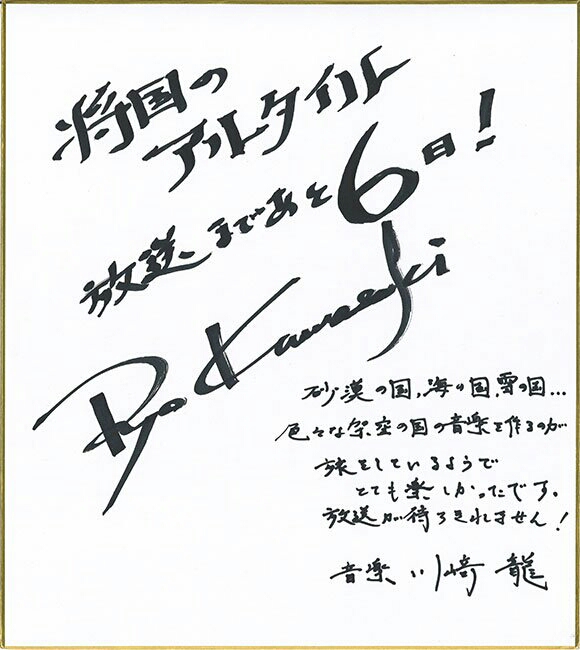 将国の
アルタイル
放送まであと6日!
Ryo Kawasaki
砂漠の国,海の国,雪の国...
色々な架空の国の音楽を作るのが
旅をしているようで
とても楽しかったです。
放送が待ちきれません!
音楽 川﨑 龍